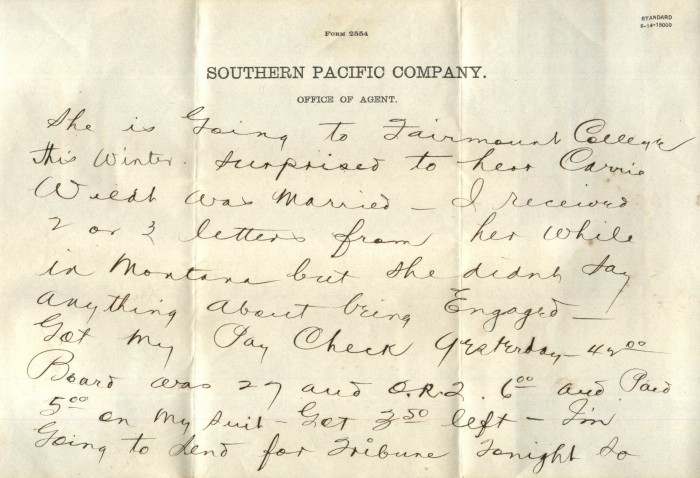 Form 2554
STANDARD
5-14-15000
SOUTHERN PACIFIC COMPANY.
OFFICE OF AGENT.
She is Going to Fairmount College
this Winter. Surprised to hear Carrie
was Married – I received
2 or 3 letters from her while
in Montana but she didnt say
anything About being Engaged –
Got My Pay Check Yesterday –
Board was 27 and 6 00 and Paid
5 00 on My Suit – Got 3 50 left – I'm
Going to Send for Tribune Tonight So